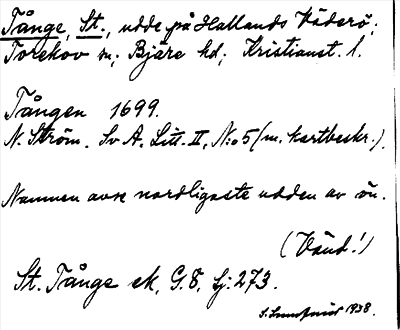 Tånge, St., udde på Hallands Väderö;
Torekov sn; Bjäre hd; Kristianst. l.
Tången 1699.
N. Ström. Sv A. Litt. II, N:o 5 (m. kartbeskr.).
Namnen avse nordligaste udden av ön.
(Vänd!)
St. Tånge ek, G.8, Lj: 273.
1938.